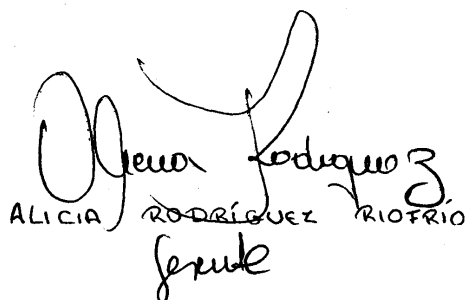 Alicia Rodríguez
ALICIA RODRÍGUEZ RIOFRÍO
Gerente